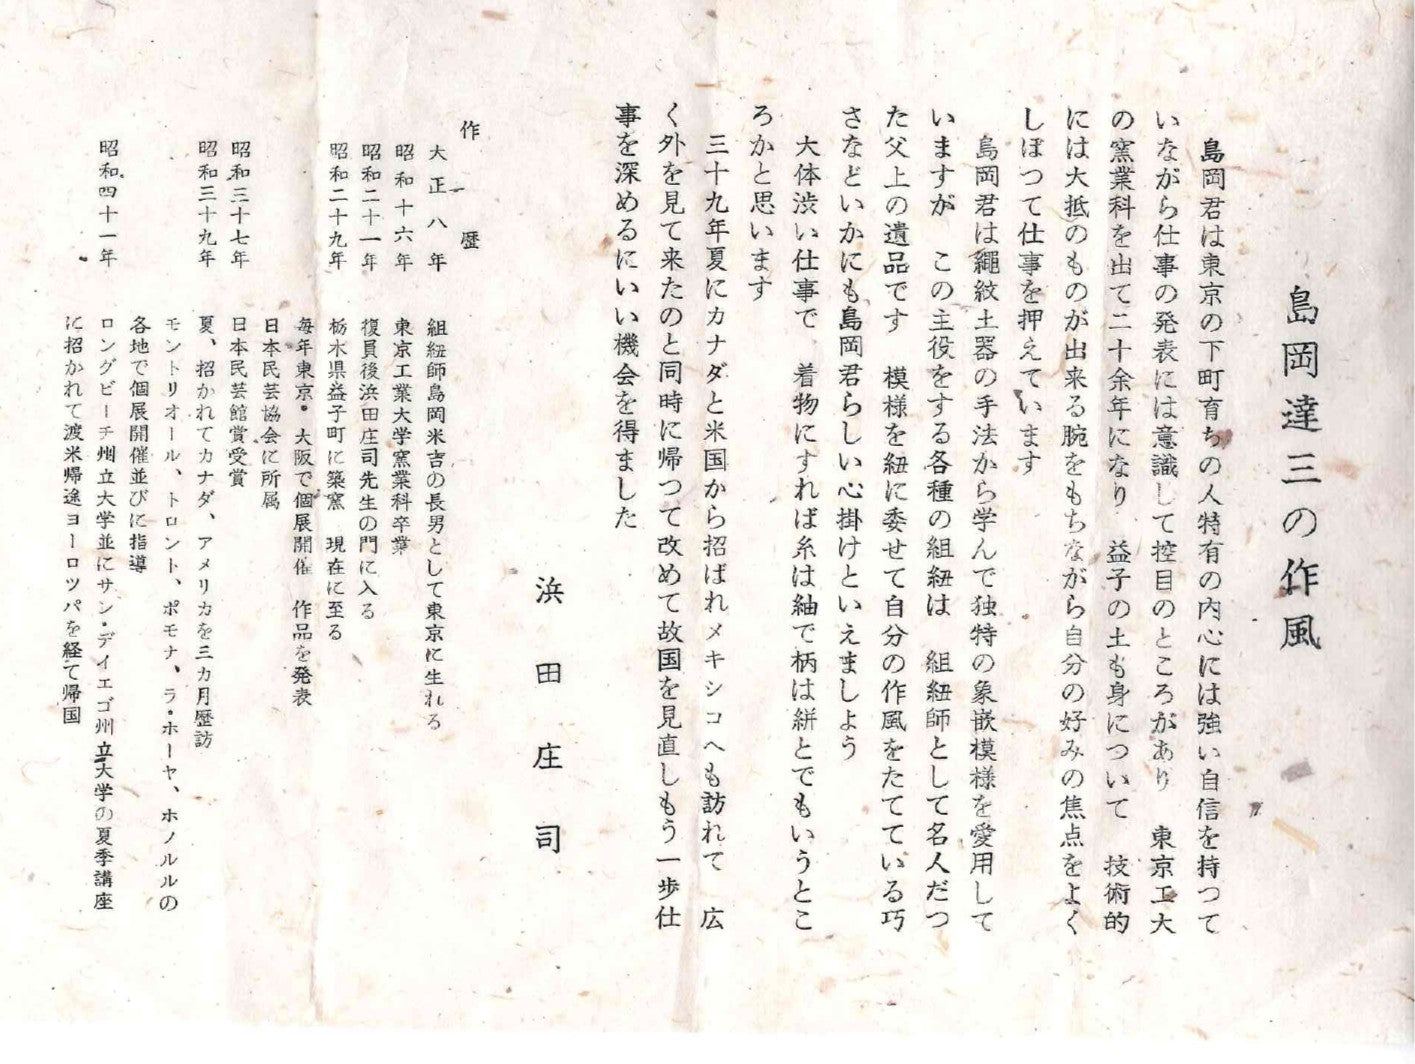 島岡達三の作風
島岡君は東京の下町育ちの人特有の内心には強い自信を持つて
いながら仕事の発表には意識して控目のところがあり　東京工大
の窯業科を出て二十余年になり　益子の土も身について　技術的
には大抵のものが出来る腕をもちながら自分の好みの焦点をよく
しぼつて仕事を押えています
島岡君は縄紋土器の手法から学んで独特の象嵌模様を愛用して
いますが　この主役をする各種の組紐は　組紐師として名人だつ
た父上の遺品です　模様を紐に委せて自分の作風をたてている巧
さなどいかにも島岡君らしい心掛けといえましよう
大体渋い仕事で　着物にすれば糸は紬で柄は絣とでもいうとこ
ろかと思います
三十九年夏にカナダと米国から招ばれメキシコへも訪れて　広
く外を見て来たのと同時に帰つて改めて故国を見直しもう一歩仕
事を深めるにいい機会を得ました
浜田庄司
作歴
大正八年　組紐師島岡米吉の長男として東京に生れる
昭和十六年　東京工業大学窯業科卒業
昭和二十一年　復員後浜田庄司先生の門に入る
昭和二十九年　栃木県益子町に築窯　現在に至る
毎年東京・大阪で個展開催　作品を発表
日本民芸協会に所属
昭和三十七年　日本民芸館賞受賞
昭和三十九年　夏、招かれてカナダ、アメリカを三カ月歴訪
モントリオール、トロント、ポモナ、ラ・ホーヤ、ホノルルの
各地で個展開催並びに指導
昭和四十一年　ロングビーチ州立大学並にサン・デイエゴ州立大学の夏季講座
に招かれて渡米帰途ヨーロツパを経て帰国